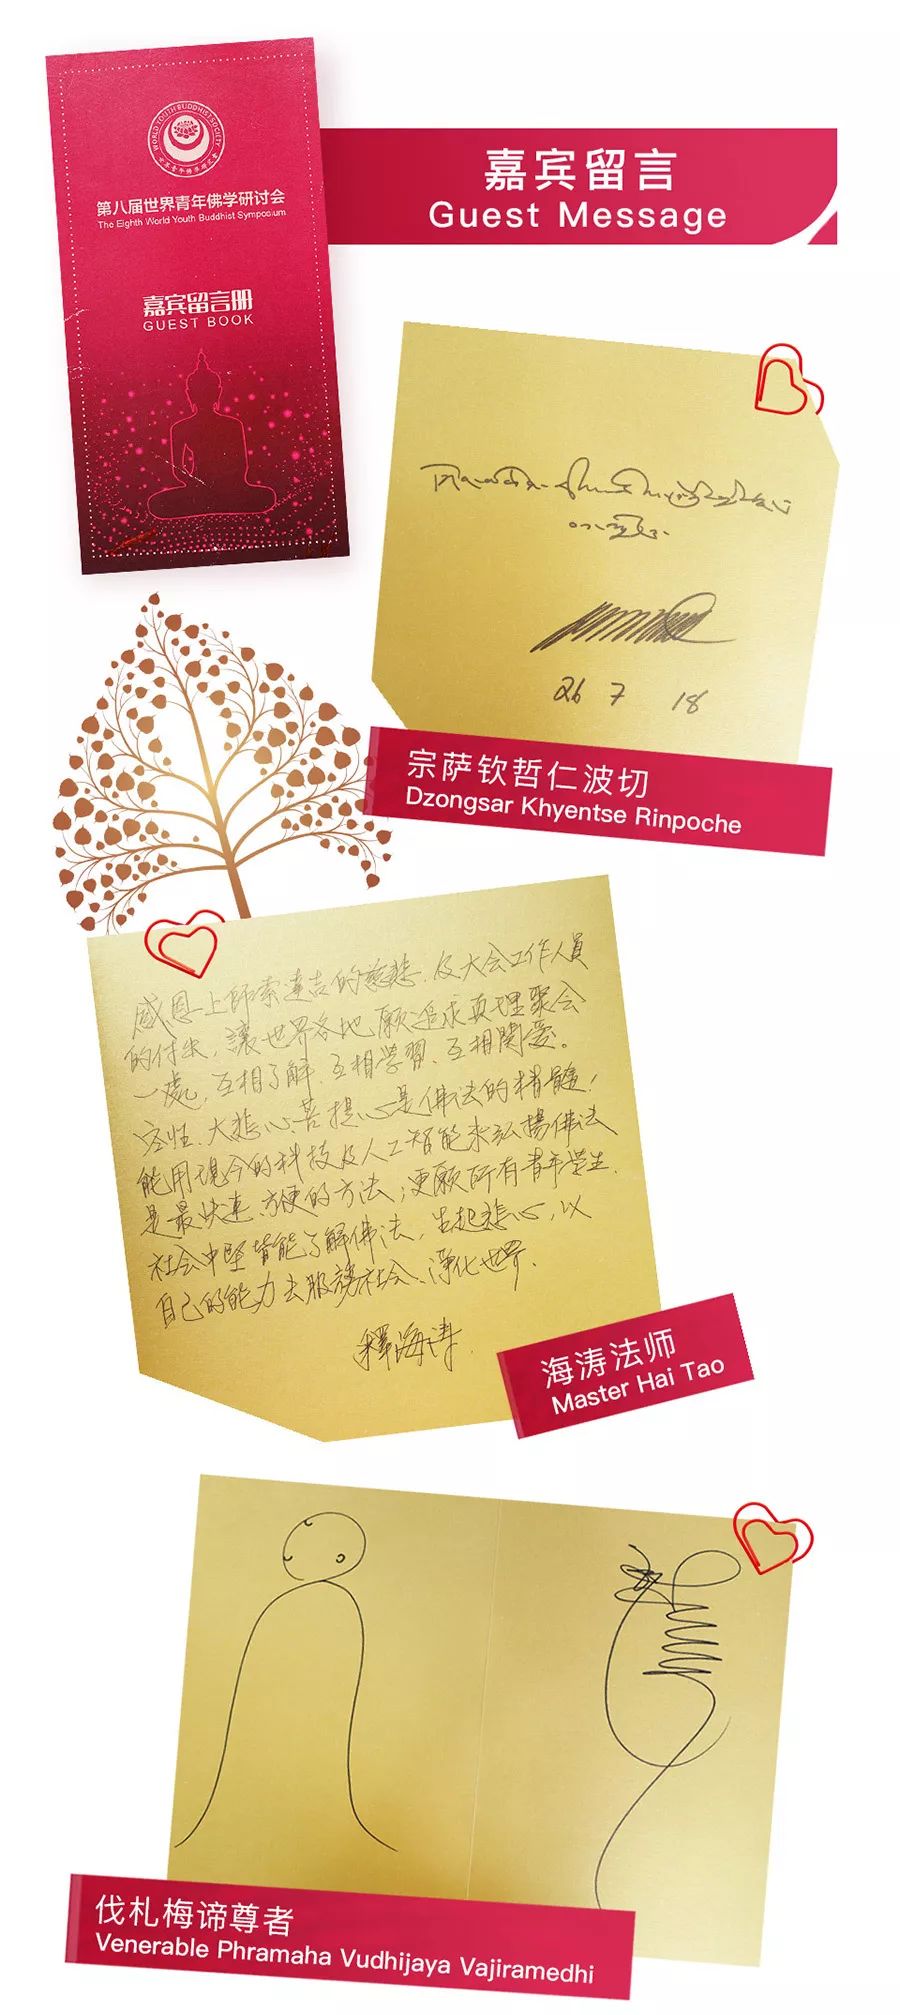 WORLD YOUTH BUDDHIST SOCIETY
世界青年佛学研究会
第八届世界青年佛学研讨会
The Eighth World Youth Buddhist Symposium
嘉宾留言册
GUEST BOOK
嘉宾留言
Guest Message
26 7 18
宗萨钦哲仁波切
Dzongsar Khyentse Rinpoche
感恩上師索達吉的慈悲.及大会工作人員
的付出,讓世界各地願追求真理聚会
一處,互相了解.互相学習.互相関愛。
空性.大悲心菩提心是佛法的精髓,
能用現今的科技及人工智能来弘揚佛法
是最快速.方便的方法;更願所有青年学生.
社会中堅皆能了解佛法,生起悲心,以
自己的能力去服務社会、淨化世界.
釋海涛
海涛法师
Master Hai Tao
伐札梅谛尊者
Venerable Phramaha Vudhijaya Vajiramedhi